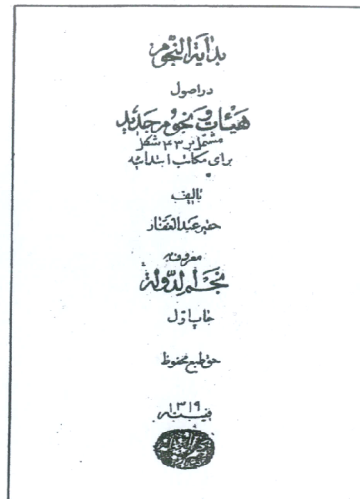 بدایة النجوم
در اصول
هیئات و نجوم جدید
مشتمل بر ۴۳ شکل
برای مکاتب ابتدائیه
تالیف
حقیر عبدالغفار
معروف به
نجم الدولة
چاپ اول
حق طبع محفوظ
۱۳۱۹